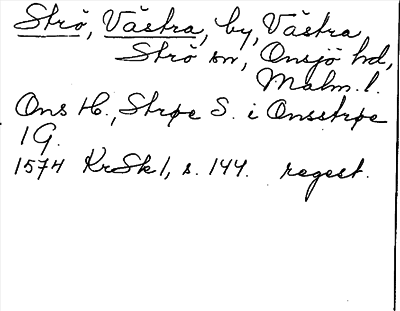 Strö, Västra, by, Västra
Strö sn, Onsjö hd,
Malm. l.
Ons H., Strøe S. i Onsstrøe
1 G.
1574 KrSk 1, s. 144. regest.